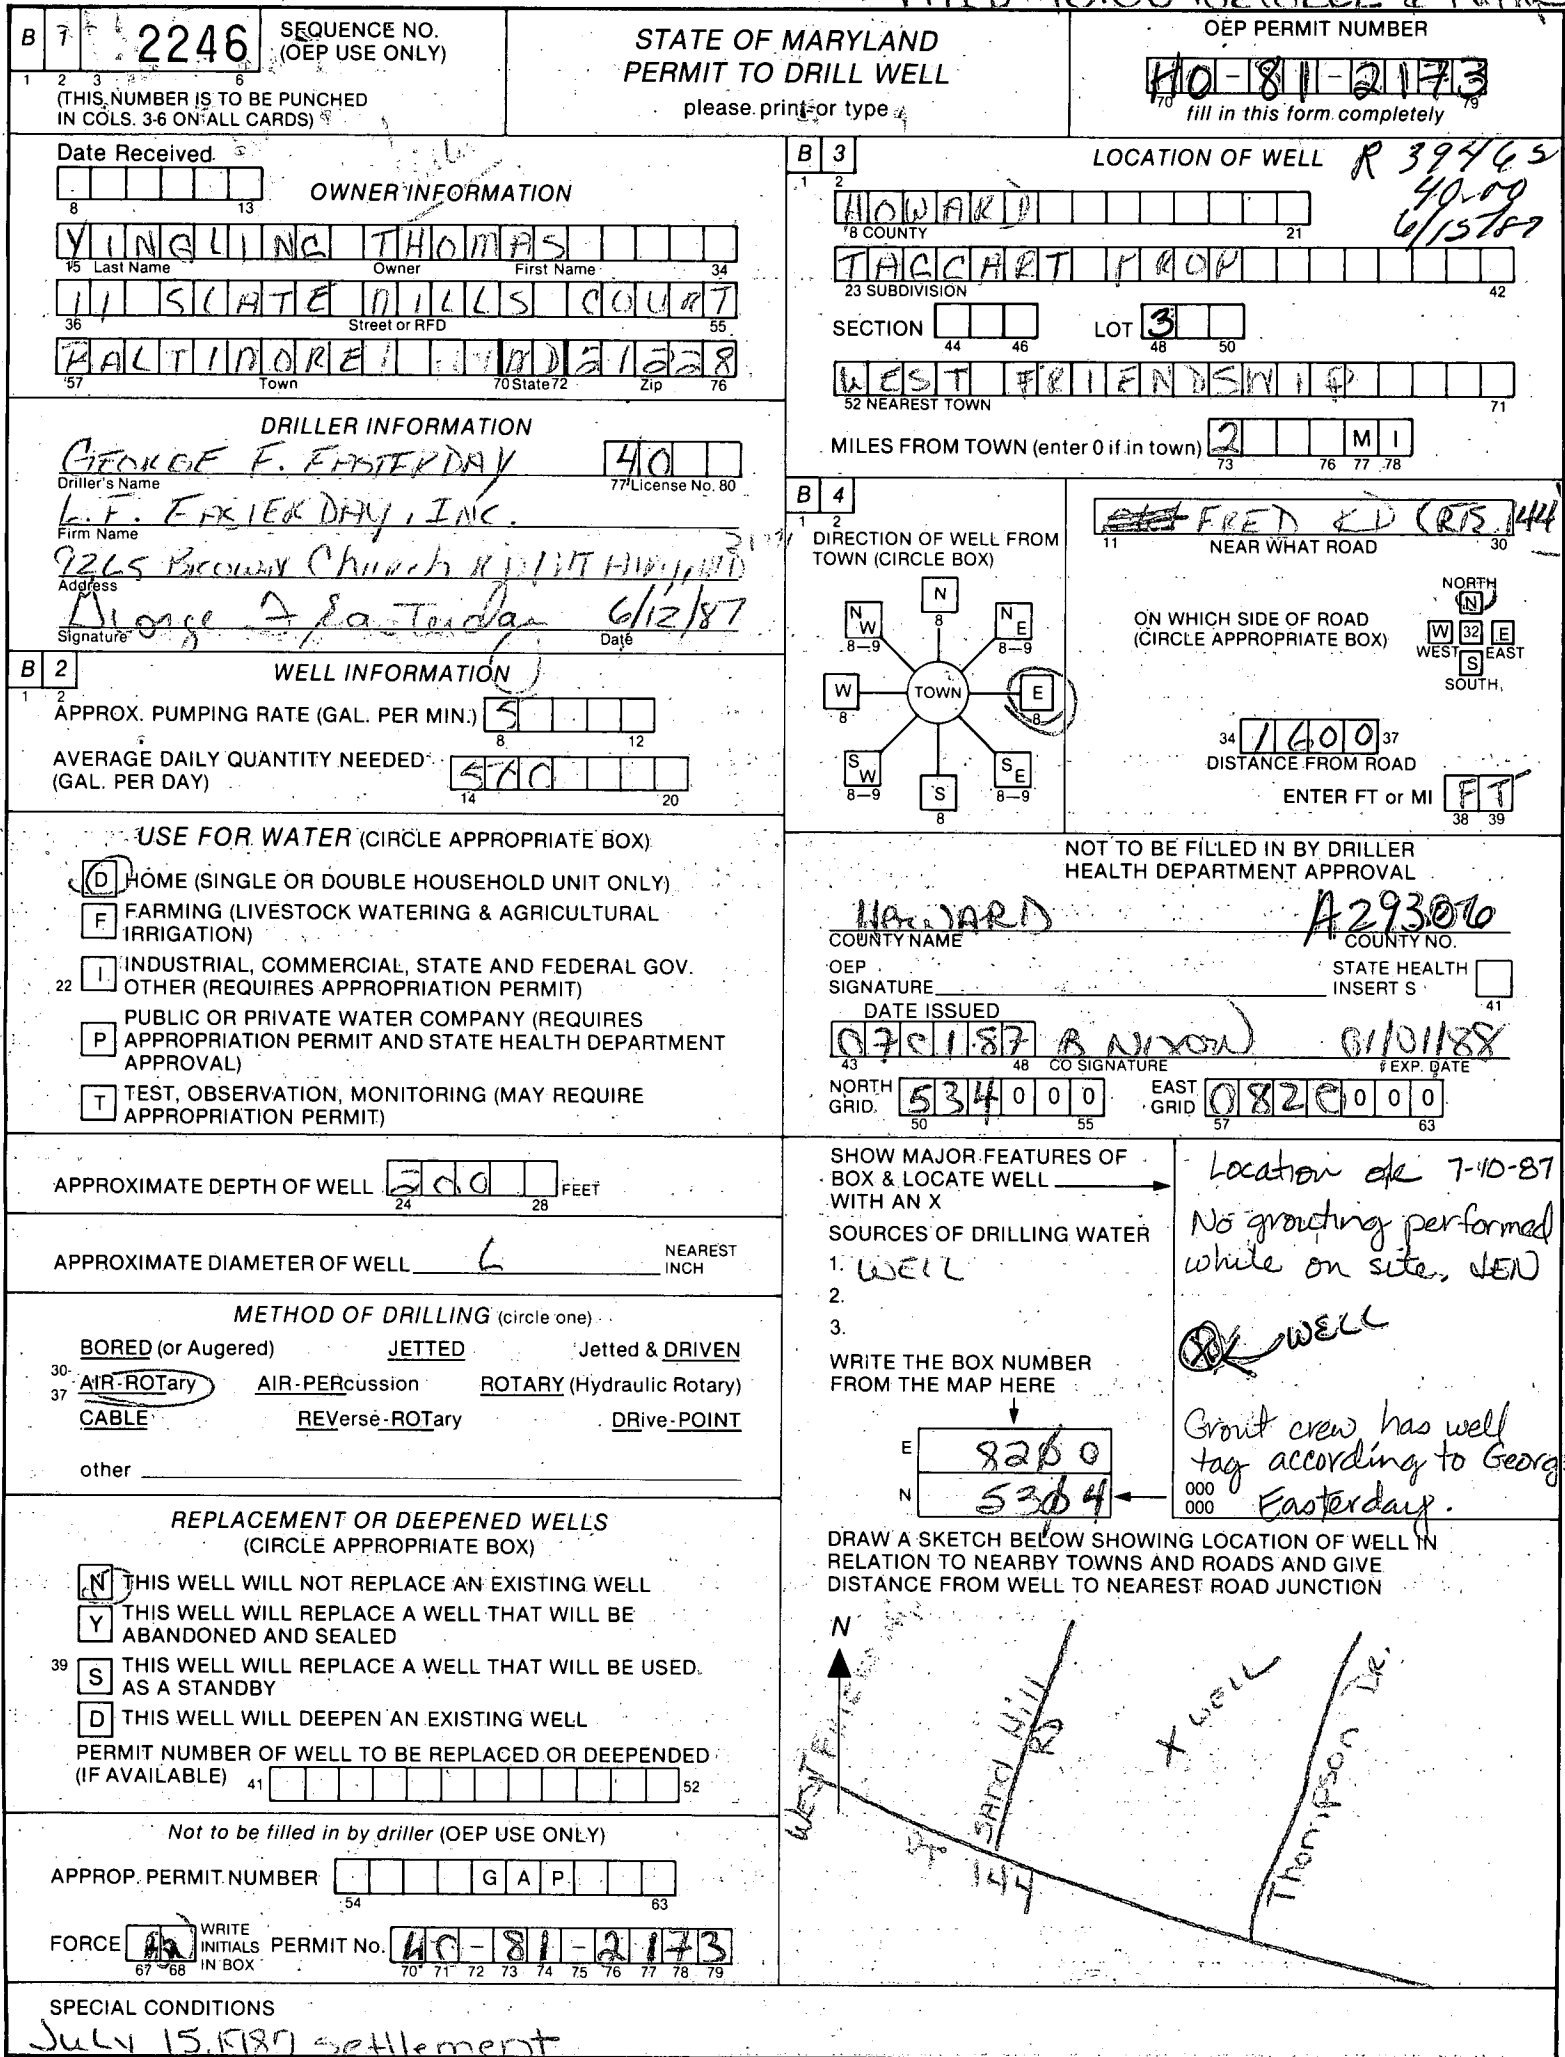 B 1 2246 SEQUENCE NO. (OEP USE ONLY)
1 2 3 6
(THIS NUMBER IS TO BE PUNCHED
IN COLS. 3-6 ON ALL CARDS)
STATE OF MARYLAND
PERMIT TO DRILL WELL
please print or type
OEP PERMIT NUMBER
HO-81-2173
70 79
fill in this form completely
Date Received
8 13
OWNER INFORMATION
YINGLING THOMAS
15 Last Name Owner First Name 34
11 SLATE MILLS COURT
36 Street or RFD 55
BALTIMORE MD 21228
57 Town 70 State 72 Zip 76
DRILLER INFORMATION
GEORGE F. EASTERDAY 40
Driller's Name 77 License No. 80
L.F. EASTERDAY, INC.
Firm Name
9265 Brown Church Rd
Address
George F Easterday 6/12/87
Signature Date
B 2 WELL INFORMATION
1 2
APPROX. PUMPING RATE (GAL. PER MIN.) 5
8 12
AVERAGE DAILY QUANTITY NEEDED
(GAL. PER DAY) 500
14 20
USE FOR WATER (CIRCLE APPROPRIATE BOX)
D HOME (SINGLE OR DOUBLE HOUSEHOLD UNIT ONLY)
F FARMING (LIVESTOCK WATERING & AGRICULTURAL
IRRIGATION)
22 I INDUSTRIAL, COMMERCIAL, STATE AND FEDERAL GOV.
OTHER (REQUIRES APPROPRIATION PERMIT)
P PUBLIC OR PRIVATE WATER COMPANY (REQUIRES
APPROPRIATION PERMIT AND STATE HEALTH DEPARTMENT
APPROVAL)
T TEST, OBSERVATION, MONITORING (MAY REQUIRE
APPROPRIATION PERMIT)
APPROXIMATE DEPTH OF WELL 200 FEET
24 28
APPROXIMATE DIAMETER OF WELL 6 NEAREST INCH
METHOD OF DRILLING (circle one)
BORED (or Augered) JETTED Jetted & DRIVEN
30-37 AIR-ROTary AIR-PERcussion ROTARY (Hydraulic Rotary)
CABLE REVerse-ROTary DRive-POINT
other
REPLACEMENT OR DEEPENED WELLS
(CIRCLE APPROPRIATE BOX)
N THIS WELL WILL NOT REPLACE AN EXISTING WELL
Y THIS WELL WILL REPLACE A WELL THAT WILL BE
ABANDONED AND SEALED
39 S THIS WELL WILL REPLACE A WELL THAT WILL BE USED
AS A STANDBY
D THIS WELL WILL DEEPEN AN EXISTING WELL
PERMIT NUMBER OF WELL TO BE REPLACED OR DEEPENDED
(IF AVAILABLE) 41 52
Not to be filled in by driller (OEP USE ONLY)
APPROP. PERMIT NUMBER G A P
54 63
FORCE WRITE INITIALS IN BOX PERMIT No. HO-81-2173
67 68 70 71 72 73 74 75 76 77 78 79
SPECIAL CONDITIONS
July 15, 1987 settlement
B 3 LOCATION OF WELL R 39465
1 2 40.00
6/15/87
HOWARD
8 COUNTY 21
TAGGART PROP
23 SUBDIVISION 42
SECTION LOT 3
44 46 48 50
WEST FRIENDSHIP
52 NEAREST TOWN 71
MILES FROM TOWN (enter 0 if in town) 2 M I
73 76 77 78
B 4
1 2
DIRECTION OF WELL FROM
TOWN (CIRCLE BOX)
N
8
NW NE
8-9 8-9
W TOWN E
8 8
SW SE
8-9 8-9
S
8
FRED RD (RT. 144
11 NEAR WHAT ROAD 30
ON WHICH SIDE OF ROAD
(CIRCLE APPROPRIATE BOX)
NORTH
N
W 32 E
WEST EAST
S
SOUTH
34 1600 37
DISTANCE FROM ROAD
ENTER FT or MI FT
38 39
NOT TO BE FILLED IN BY DRILLER
HEALTH DEPARTMENT APPROVAL
HOWARD A29306
COUNTY NAME COUNTY NO.
OEP
SIGNATURE
STATE HEALTH
INSERT S
41
DATE ISSUED
070187 B NIXON 01/01/88
43 48 CO SIGNATURE EXP. DATE
NORTH GRID 534 0 0 0 EAST GRID 0820 0 0 0
50 55 57 63
SHOW MAJOR FEATURES OF
BOX & LOCATE WELL
WITH AN X
SOURCES OF DRILLING WATER
1. WELL
2.
3.
WRITE THE BOX NUMBER
FROM THE MAP HERE
E 8200
N 5304
Location ok 7-10-87
No grouting performed
while on site. JEN
X WELL
Grout crew has well
tag according to Georg
000
000 Easterday.
DRAW A SKETCH BELOW SHOWING LOCATION OF WELL IN
RELATION TO NEARBY TOWNS AND ROADS AND GIVE
DISTANCE FROM WELL TO NEAREST ROAD JUNCTION
N
WEST
Sand Hill Rd
X WELL
Thompson Dr.
RT. 144